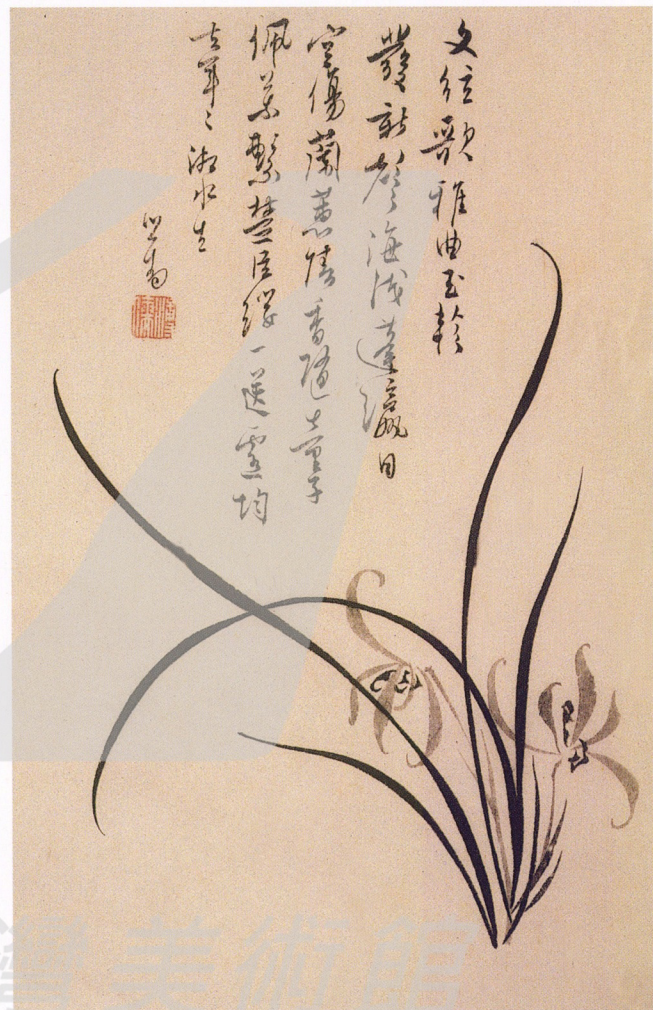 歌雅曲玉軫
發新聲海淺蓬瀛日
空傷蘭蕙情香隨童子
佩葉繫楚臣纓一送靈均
去年々湘水生
灣美術館